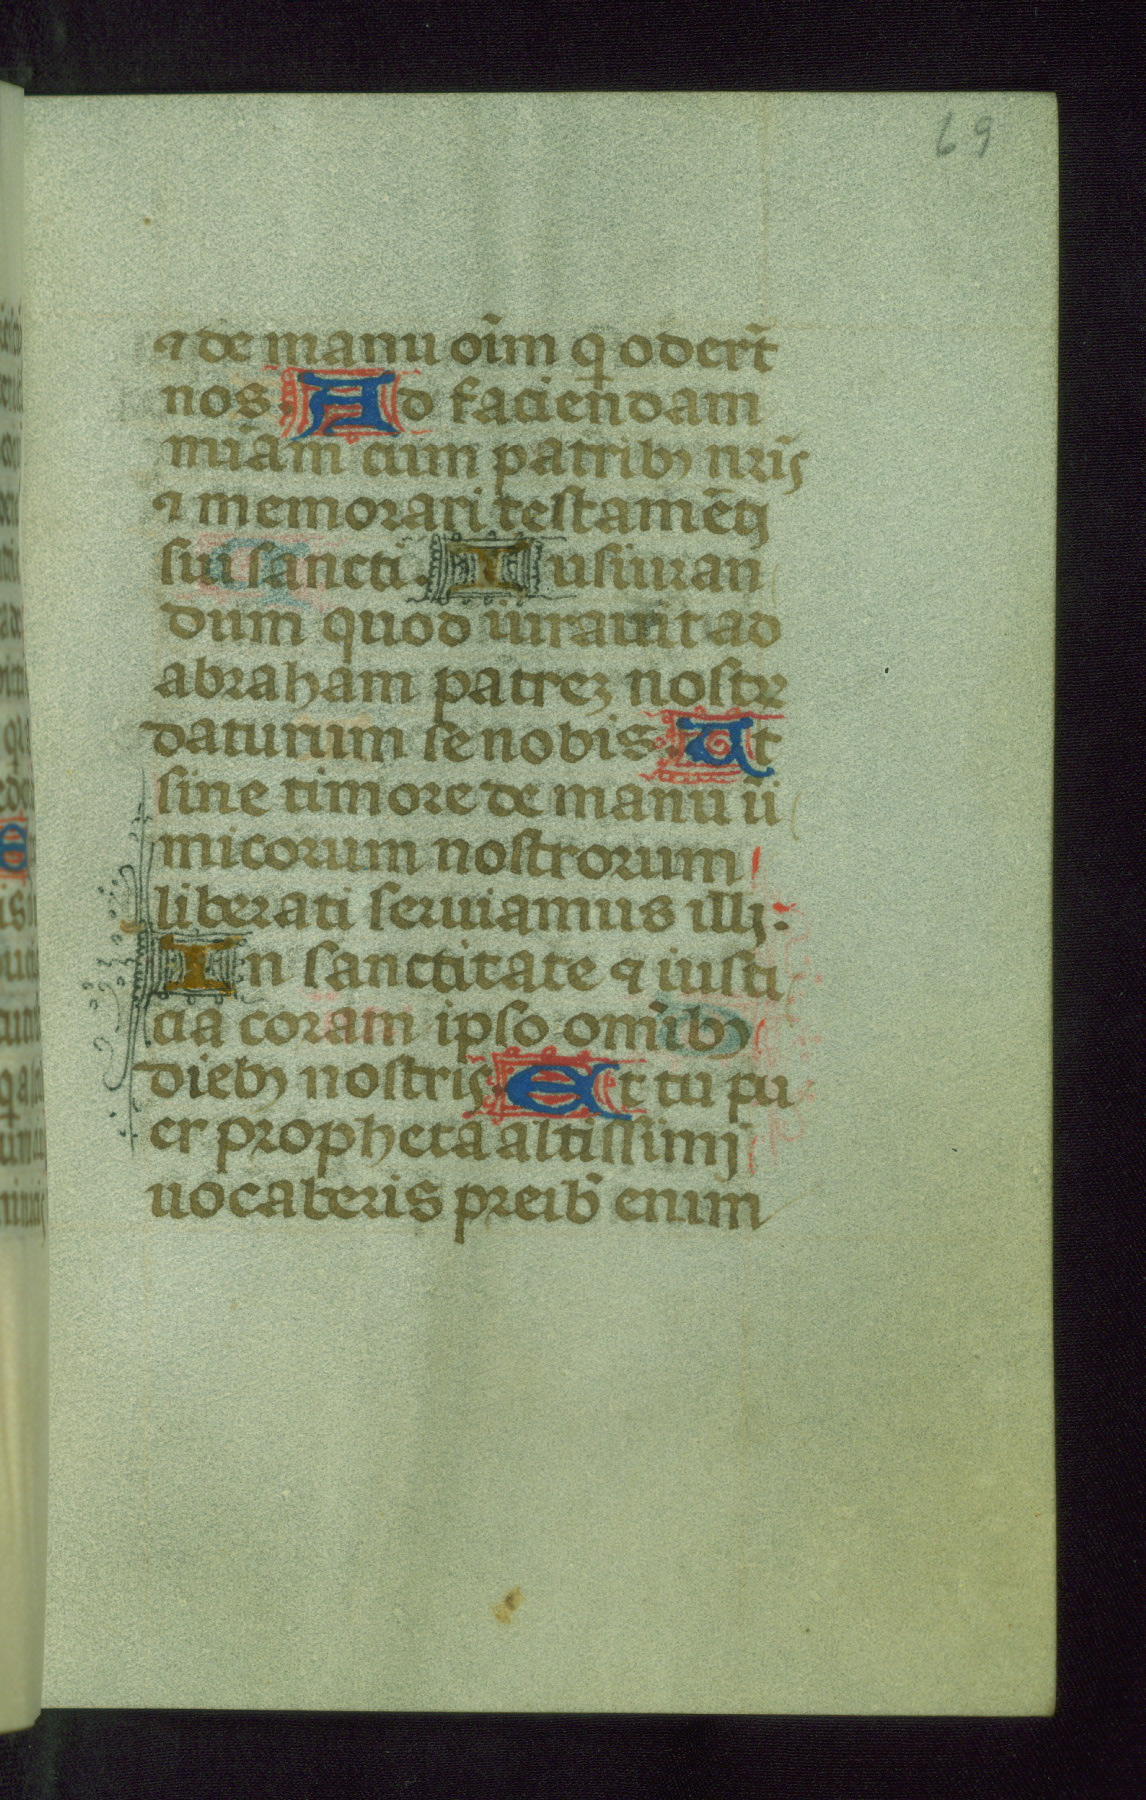 69
⁊ de manu oīm q̇ odert̄
nos. Ad faciendam
miām cum patribꝰ nr̄is
⁊ memorari testamētj
sui sancti. Iusiuran
dum quod iurauit ad
abraham patreꝫ nostꝝ
daturum se nobis. Ut
sine timore de manu ii
micorum nostrorum
liberati seruiamus illj.
In sanctitate ⁊ iusti
cia coram ipso om̄ibꝰ
diebꝰ nostris. Et tu pu
er propheta altissimj
uocaberis preib̄ enim